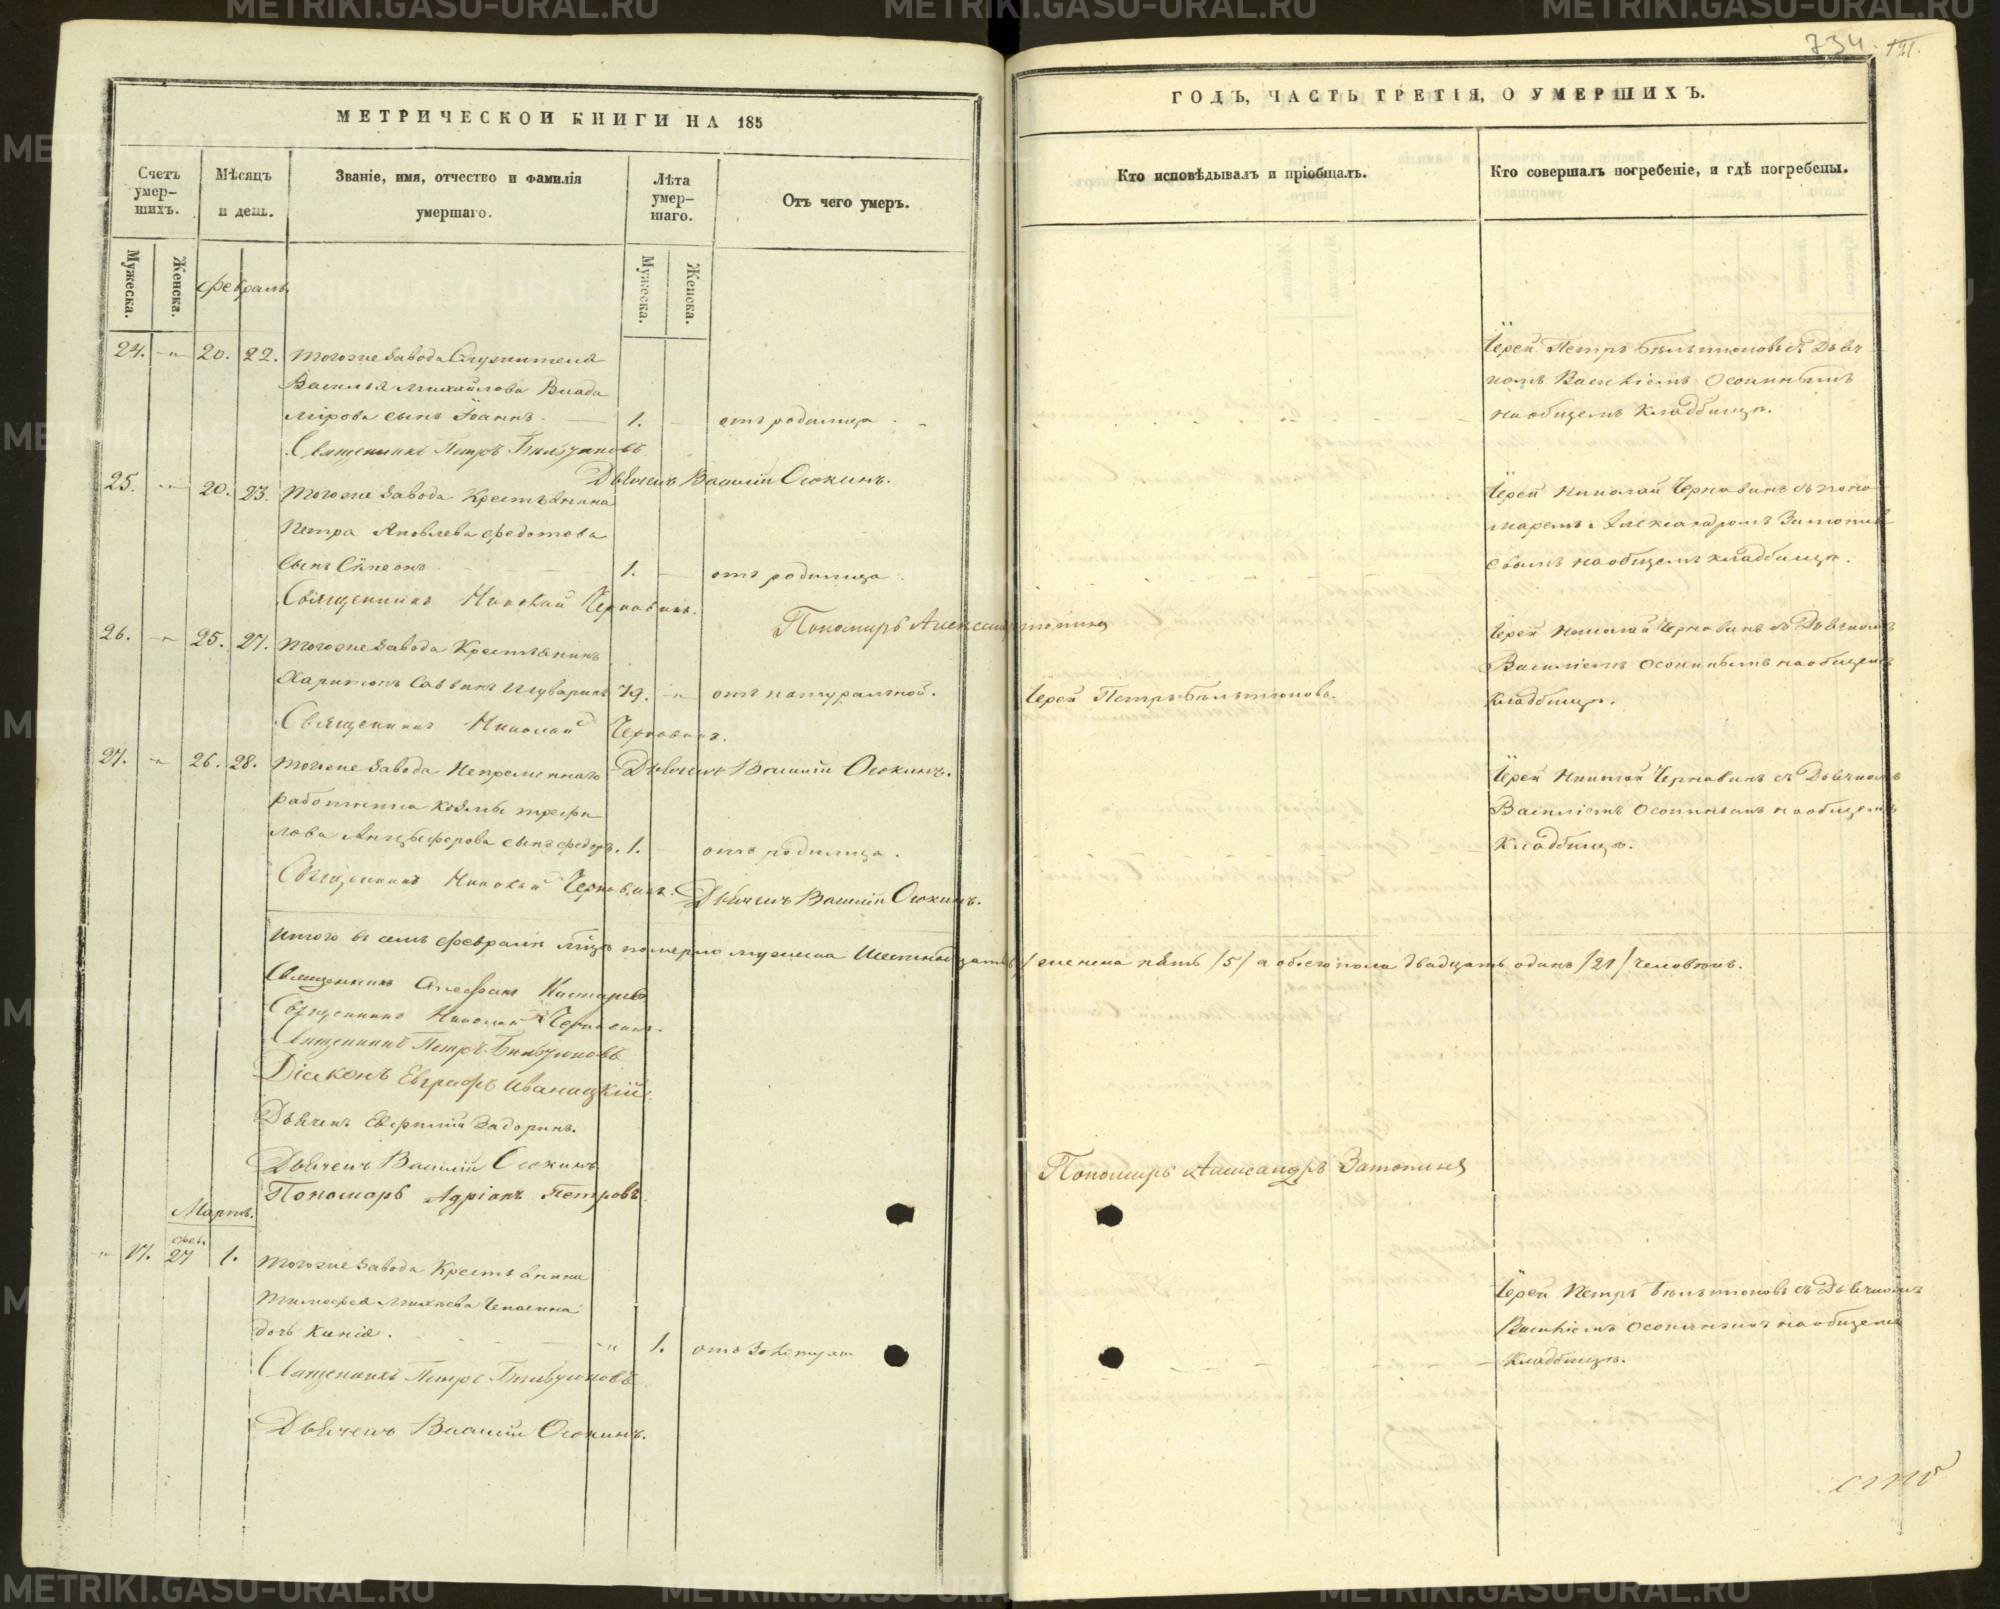 МЕТРИЧЕСКОЙ КНИГИ НА 185
Счетъ умер-
шихъ.
Мѣсяцъ
и день.
Званіе, имя, отчество и фамилія
умершаго.
Лѣта
умер-
шаго.
Отъ чего умеръ.
Мужеска.
Женска.
Мужеска.
Женска.
Февраль
24. -"- 20. 22. Тогоже завода Служителя
Василья Михайлова Влади
мірова сынъ Іоаннъ 1. отъ родимца
Священникъ Петръ
Дьячекъ Василій Осокинъ.
25. -"- 20. 23. Тогоже завода Крестьянина
Петра Яковлева Федотова
сынъ Симеонъ 1. отъ родимца.
Священникъ Николай Чернавинъ.
Пономарь
26. -"- 25. 27. Тогоже завода Крестьянинъ
Харитонъ Саввинъ Шуваринъ 79. -"- отъ натуральной.
Священникъ Николай Чернавинъ.
Дьячекъ Василій Осокинъ.
27. -"- 26. 28. Тогоже завода Непременнаго
работника Козмы Трефи
лова сынъ Федоръ. 1. отъ родимца.
Священникъ Николай Чернавинъ. Дьячекъ Василій Осокинъ.
Итого въ семъ Февралѣ мцѣ померло мужеска Шестнадцать / женска пять /5/ а обоего пола двадцать одинъ /21/ человѣкъ.
Священникъ Стефанъ
Священникъ Николай Чернавинъ.
Священникъ Петръ
Діаконъ Евграфъ Иваницкій
Дьячекъ Евфимій Задоринъ.
Дьячекъ Василій Осокинъ
Пономарь Адріанъ Петровъ.
Мартъ.
" 17. фев. 27 1. Тогоже завода Крестьянина
Тимофея
дочь 1. отъ
Священникъ Петръ
Дьячекъ Василій Осокинъ.
734
121.
ГОДЪ, ЧАСТЬ ТРЕТІЯ, О УМЕРШИХЪ.
Кто исповѣдывалъ и пріобщалъ.
Кто совершалъ погребеніе, и гдѣ погребены.
Іерей Петръ съ Дьяч
комъ Василіемъ Осокинымъ
на общемъ кладбищѣ.
Іерей Николай Чернавинъ съ поно
маремъ Александромъ Затопляе
вымъ на общемъ кладбищѣ.
Іерей Николай Чернавинъ съ Дьячкомъ
Василіемъ Осокинымъ на общемъ
кладбищѣ.
Іерей Петръ
Іерей Николай Чернавинъ съ Дьячкомъ
Василіемъ Осокинымъ на общемъ
кладбищѣ.
Пономарь Александръ
Іерей Петръ съ Дьячкомъ
Василіемъ Осокинымъ на общемъ
кладбищѣ.
METRIKI.GASU-URAL.RU